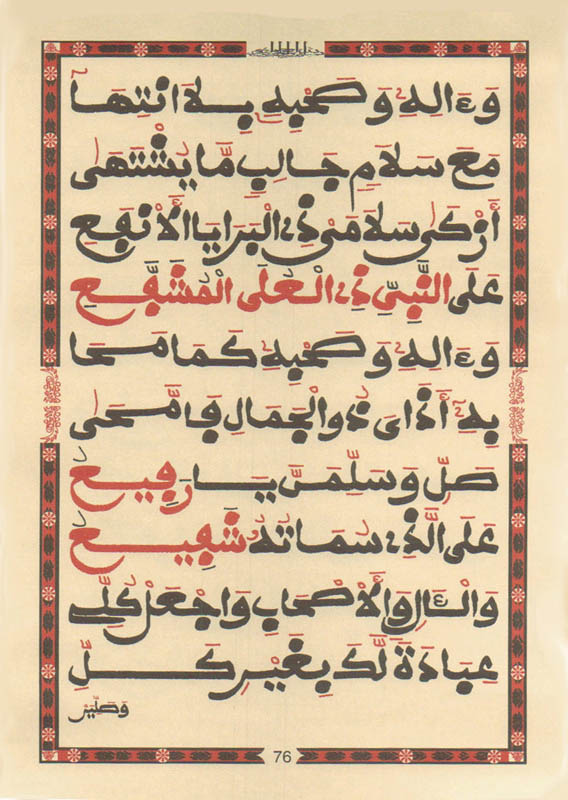 وَءَالِهِ وَصَحْبِهِ بِلَا انْتِهَا
مَعَ سَلَامٍ جَالِبٍ مَّا يُشْتَهَى
أَزْكَى سَلَامَيْ ذِے الْبَرَايَا الْأَنْفَعِ
عَلَى النَّبِيِّ ذِے الْعُلَى الْمُشَفَّعِ
وَءَالِهِ وَصَحْبِهِ كَمَا مَحَا
بِهِ أَذَاىَ ذُو الْجَمَالِ فَامَّحَى
صَلِّ وَسَلِّمَنَّ يَا رَفِيعُ
عَلَى الَّذِے سَمَاتُهُ شَفِيعُ
وَالْآلِ وَالْأَصْحَابِ وَاجْعَلْ كُلِّے
عِبَادَةً لَّكَ بِغَيْرِ كَلِّ
وَصَلِّيَنْ
76